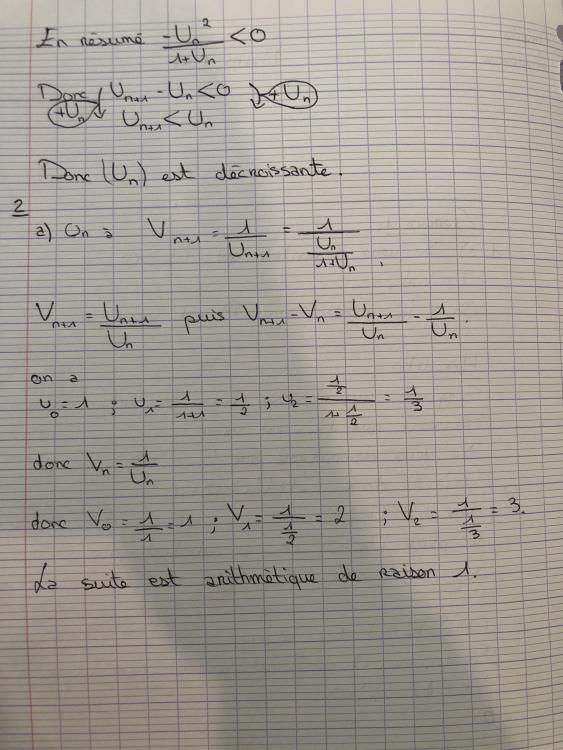 En résumé -Un²/(1+Un) < 0
Donc Un+1 - Un < 0 +Un
+Un Un+1 < Un
Donc (Un) est décroissante.
2
a) On a Vn+1 = 1/Un+1 = 1/(Un/(1+Un)) ,
Vn+1 = Un+1/Un puis Vn+1 - Vn = Un+1/Un - 1/Un .
on a
u0 = 1 ; u1 = 1/(1+1) = 1/2 ; u2 = (1/2)/(1+1/2) = 1/3
donc Vn = 1/Un
donc V0 = 1/1 = 1 ; V1 = 1/(1/2) = 2 ; V2 = 1/(1/3) = 3.
La suite est arithmétique de raison 1.